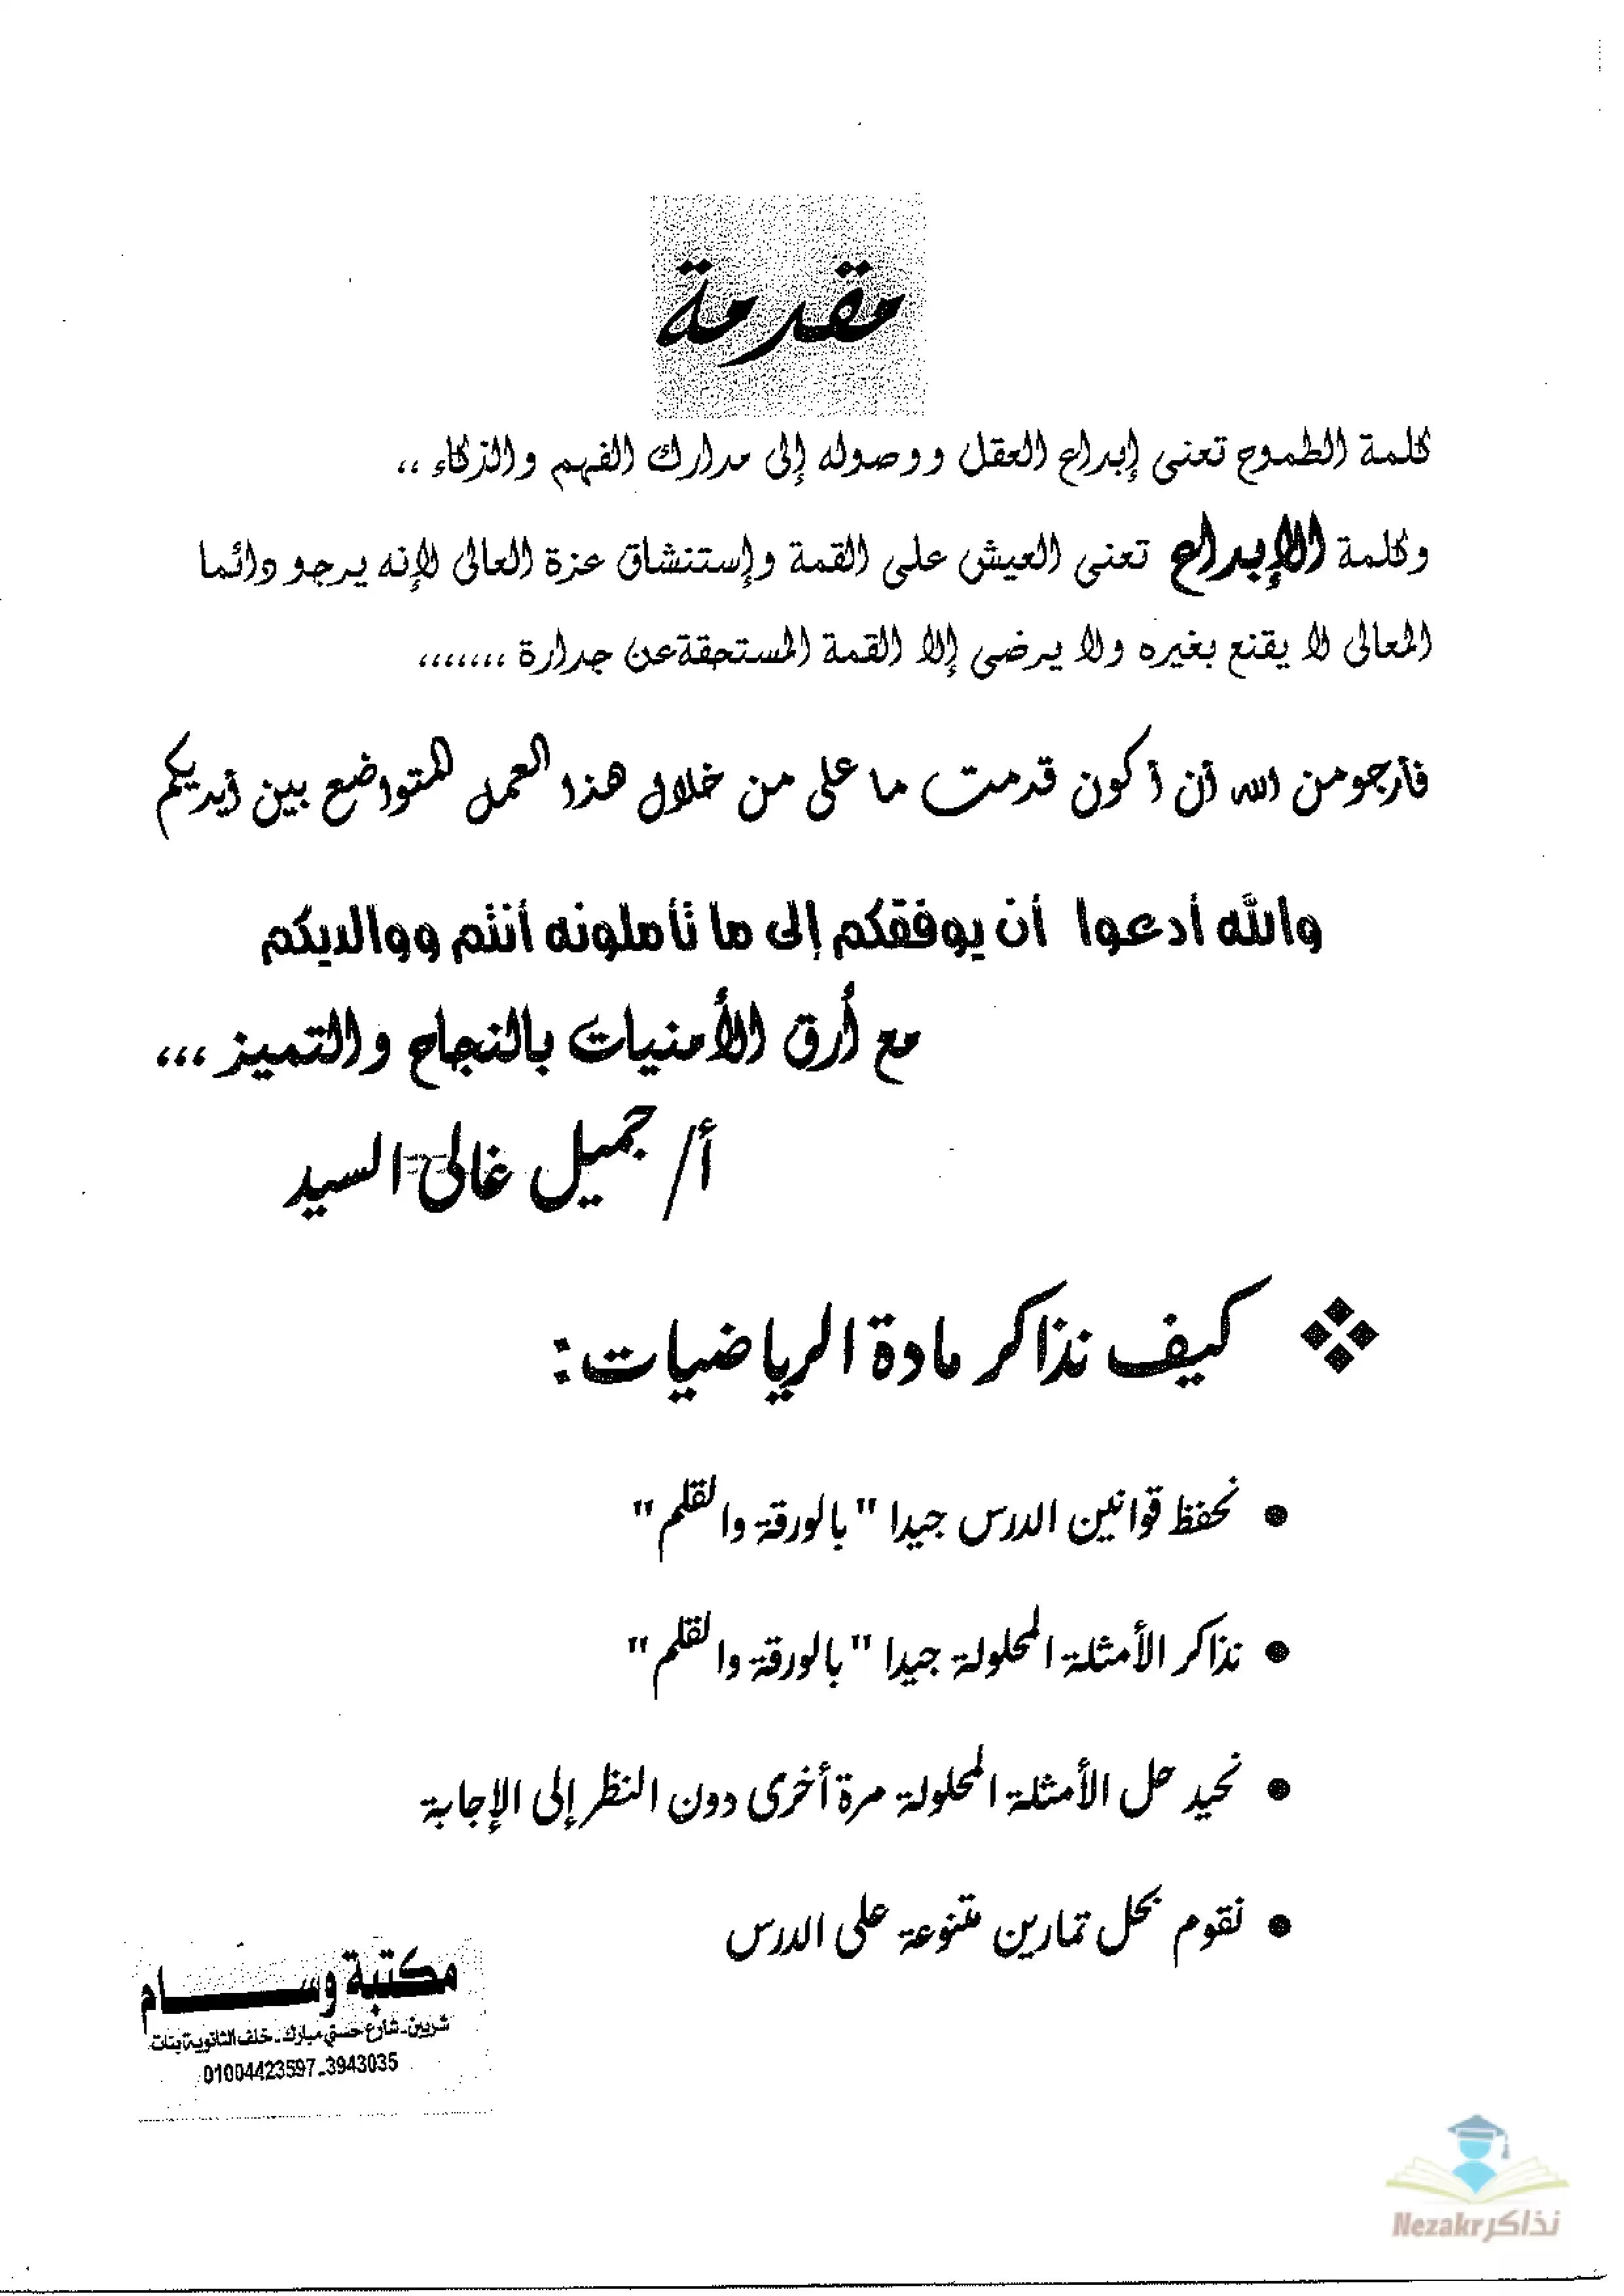 مقدمة
كلمة الطموح تعنى إبداع العقل ووصوله إلى مدارك الفهم والذكاء ،،
وكلمة الإبداع تعنى العيش على القمة وإستنشاق عزة العالى لإنه يرجو دائما
المعالى لا يقنع بغيره ولا يرضى إلا القمة المستحقة عن جدارة ،،،،،،،
فأرجو من الله أن أكون قدمت ما على من خلال هذا العمل المتواضع بين أيديكم
والله أدعوا أن يوفقكم إلى ما تأملونه أنتم ووالديكم
مع أرق الأمنيات بالنجاح والتميز ،،،
أ/ جميل غالى السيد
❖ كيف نذاكر مادة الرياضيات:
• نحفظ قوانين الدرس جيدا "بالورقة والقلم"
• نذاكر الأمثلة المحلولة جيدا "بالورقة والقلم"
• نحيد حل الأمثلة المحلولة مرة أخرى دون النظر إلى الإجابة
• نقوم بحل تمارين متنوعة على الدرس
مكتبة وســـــام
شربين - شارع حسني مبارك - خلف الثانوية بنات
01004423597-3943035
Nezakr نذاكر